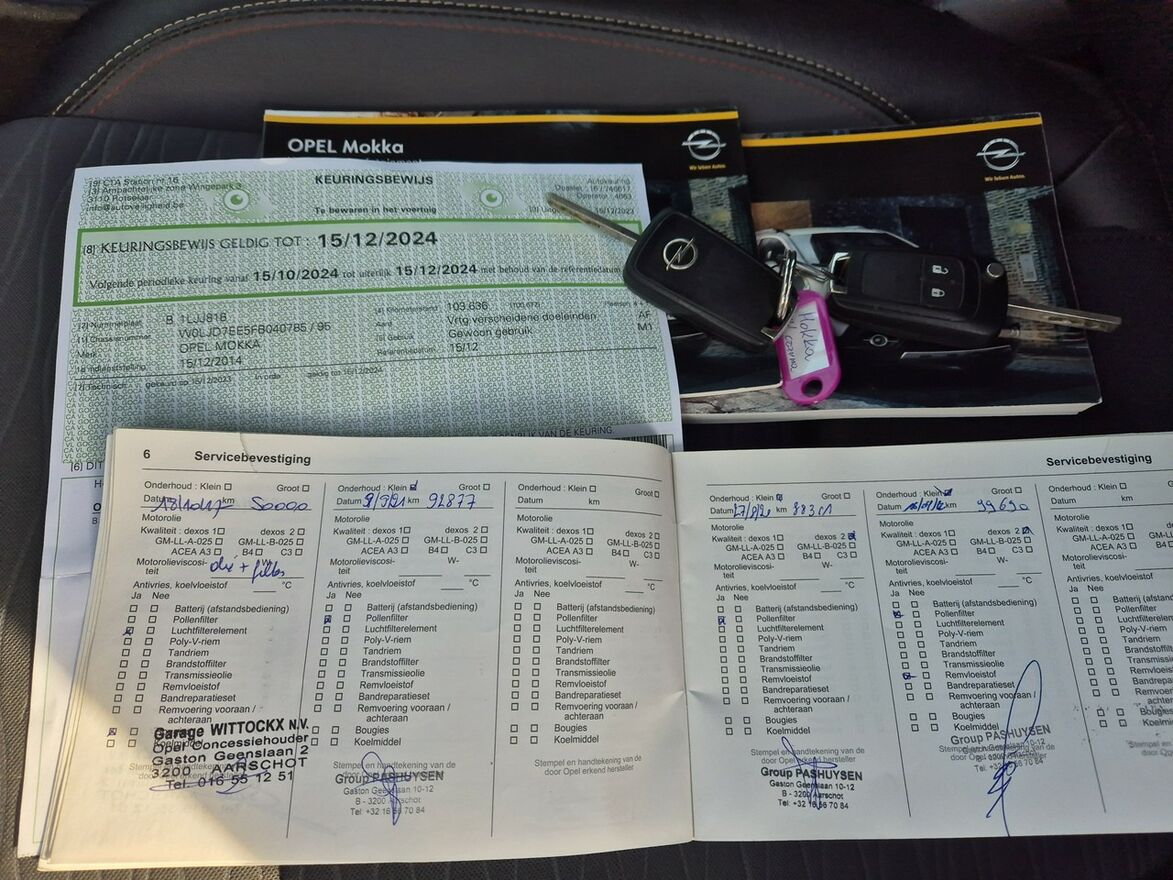 OPEL Mokka
Wir leben Autos.
Wir leben Autos.
(9) CTA Station nr.16
(3) Ampachtelijke zone Wingepark 3
3110 Rotselaar
info@autoveiligheid.be
KEURINGSBEWIJS
Te bewaren in het voertuig
Autokeuring
Operator : 4063
15/12/2023
(8) KEURINGSBEWIJS GELDIG TOT : 15/12/2024
Volgende periodieke keuring vanaf 15/10/2024 tot uiterlijk 15/12/2024 met behoud van de referentiedatum
Nummerplaat B 1LJJ818
Chassisnummer W0LJD7EE5FB040785 / 95
Merk OPEL MOKKA
Indienststelling 15/12/2014
Kilometerstand 109.636
aard Vrtg verscheidene doeleinden AF
Gebruik Gewoon gebruik M1
Referentiedatum 15/12
(7) Technisch gekeurd op 15/12/2023 In orde geldig tot 15/12/2024
VAN DE KEURING.
(6) DIT
Mokka
6 Servicebevestiging
Servicebevestiging
Onderhoud : Klein Groot
Datum km 50000
Motorolie
Kwaliteit : dexos 1 dexos 2
GM-LL-A-025 GM-LL-B-025
ACEA A3 B4 C3
Motorolieviscosi-
teit olie + filter
Antivries, koelvloeistof °C
Ja Nee
Batterij (afstandsbediening)
Pollenfilter
Luchtfilterelement
Poly-V-riem
Tandriem
Brandstoffilter
Transmissieolie
Remvloeistof
Bandreparatieset
Remvoering vooraan /
achteraan
Garage WITTOCKX N.V.
Opel Concessiehouder
Gaston Geenslaan 2
3200 AARSCHOT
Tel. 016 55 12 51
Onderhoud : Klein Groot
Datum 9/9/21 km 92877
Motorolie
Kwaliteit : dexos 1 dexos 2
GM-LL-A-025 GM-LL-B-025
ACEA A3 B4 C3
Motorolieviscosi- W-
teit
Antivries, koelvloeistof °C
Ja Nee
Batterij (afstandsbediening)
Pollenfilter
Luchtfilterelement
Poly-V-riem
Tandriem
Brandstoffilter
Transmissieolie
Remvloeistof
Bandreparatieset
Remvoering vooraan /
achteraan
Bougies
Koelmiddel
Stempel en handtekening van de
door Opel erkend hersteller
Group PASHUYSEN
Gaston Geenslaan 10-12
B - 3200 Aarschot
Tel: +32 16 56 70 84
Onderhoud : Klein Groot
Datum km
Motorolie
Kwaliteit : dexos 1 dexos 2
GM-LL-A-025 GM-LL-B-025
ACEA A3 B4 C3
Motorolieviscosi- W-
teit
Antivries, koelvloeistof °C
Ja Nee
Batterij (afstandsbediening)
Pollenfilter
Luchtfilterelement
Poly-V-riem
Tandriem
Brandstoffilter
Transmissieolie
Remvloeistof
Bandreparatieset
Remvoering vooraan /
achteraan
Bougies
Koelmiddel
Stempel en handtekening van de
door Opel erkend hersteller
Onderhoud : Klein Groot
Datum km
Motorolie
Kwaliteit : dexos 1 dexos 2
GM-LL-A-025 GM-LL-B-025
ACEA A3 B4 C3
Motorolieviscosi- W-
teit
Antivries, koelvloeistof °C
Ja Nee
Batterij (afstandsbediening)
Pollenfilter
Luchtfilterelement
Poly-V-riem
Tandriem
Brandstoffilter
Transmissieolie
Remvloeistof
Bandreparatieset
Remvoering vooraan /
achteraan
Bougies
Koelmiddel
Stempel en handtekening van de
door Opel erkend hersteller
Group PASHUYSEN
Gaston Geenslaan 10-12
B - 3200 Aarschot
Tel: +32 16 56 70 84
Onderhoud : Klein Groot
Datum km 99690
Motorolie
Kwaliteit : dexos 1 dexos 2
GM-LL-A-025 GM-LL-B-025
ACEA A3 B4 C3
Motorolieviscosi- W-
teit
Antivries, koelvloeistof °C
Ja Nee
Batterij (afstandsbediening)
Pollenfilter
Luchtfilterelement
Poly-V-riem
Tandriem
Brandstoffilter
Transmissieolie
Remvloeistof
Bandreparatieset
Remvoering vooraan /
achteraan
Bougies
Koelmiddel
Group PASHUYSEN
Onderhoud : Klein
Datum
Motorolie
Kwaliteit : dexos 1
GM-LL-A-025
ACEA A3
Motorolieviscosi-
teit
Antivries, koelvloeistof
Ja Nee
Batterij
Pollenfilter
Luchtfilterelement
Poly-V-riem
Tandriem
Brandstoffilter
Transmissieolie
Remvloeistof
Bandreparatieset
Remvoering
achteraan
Bougies